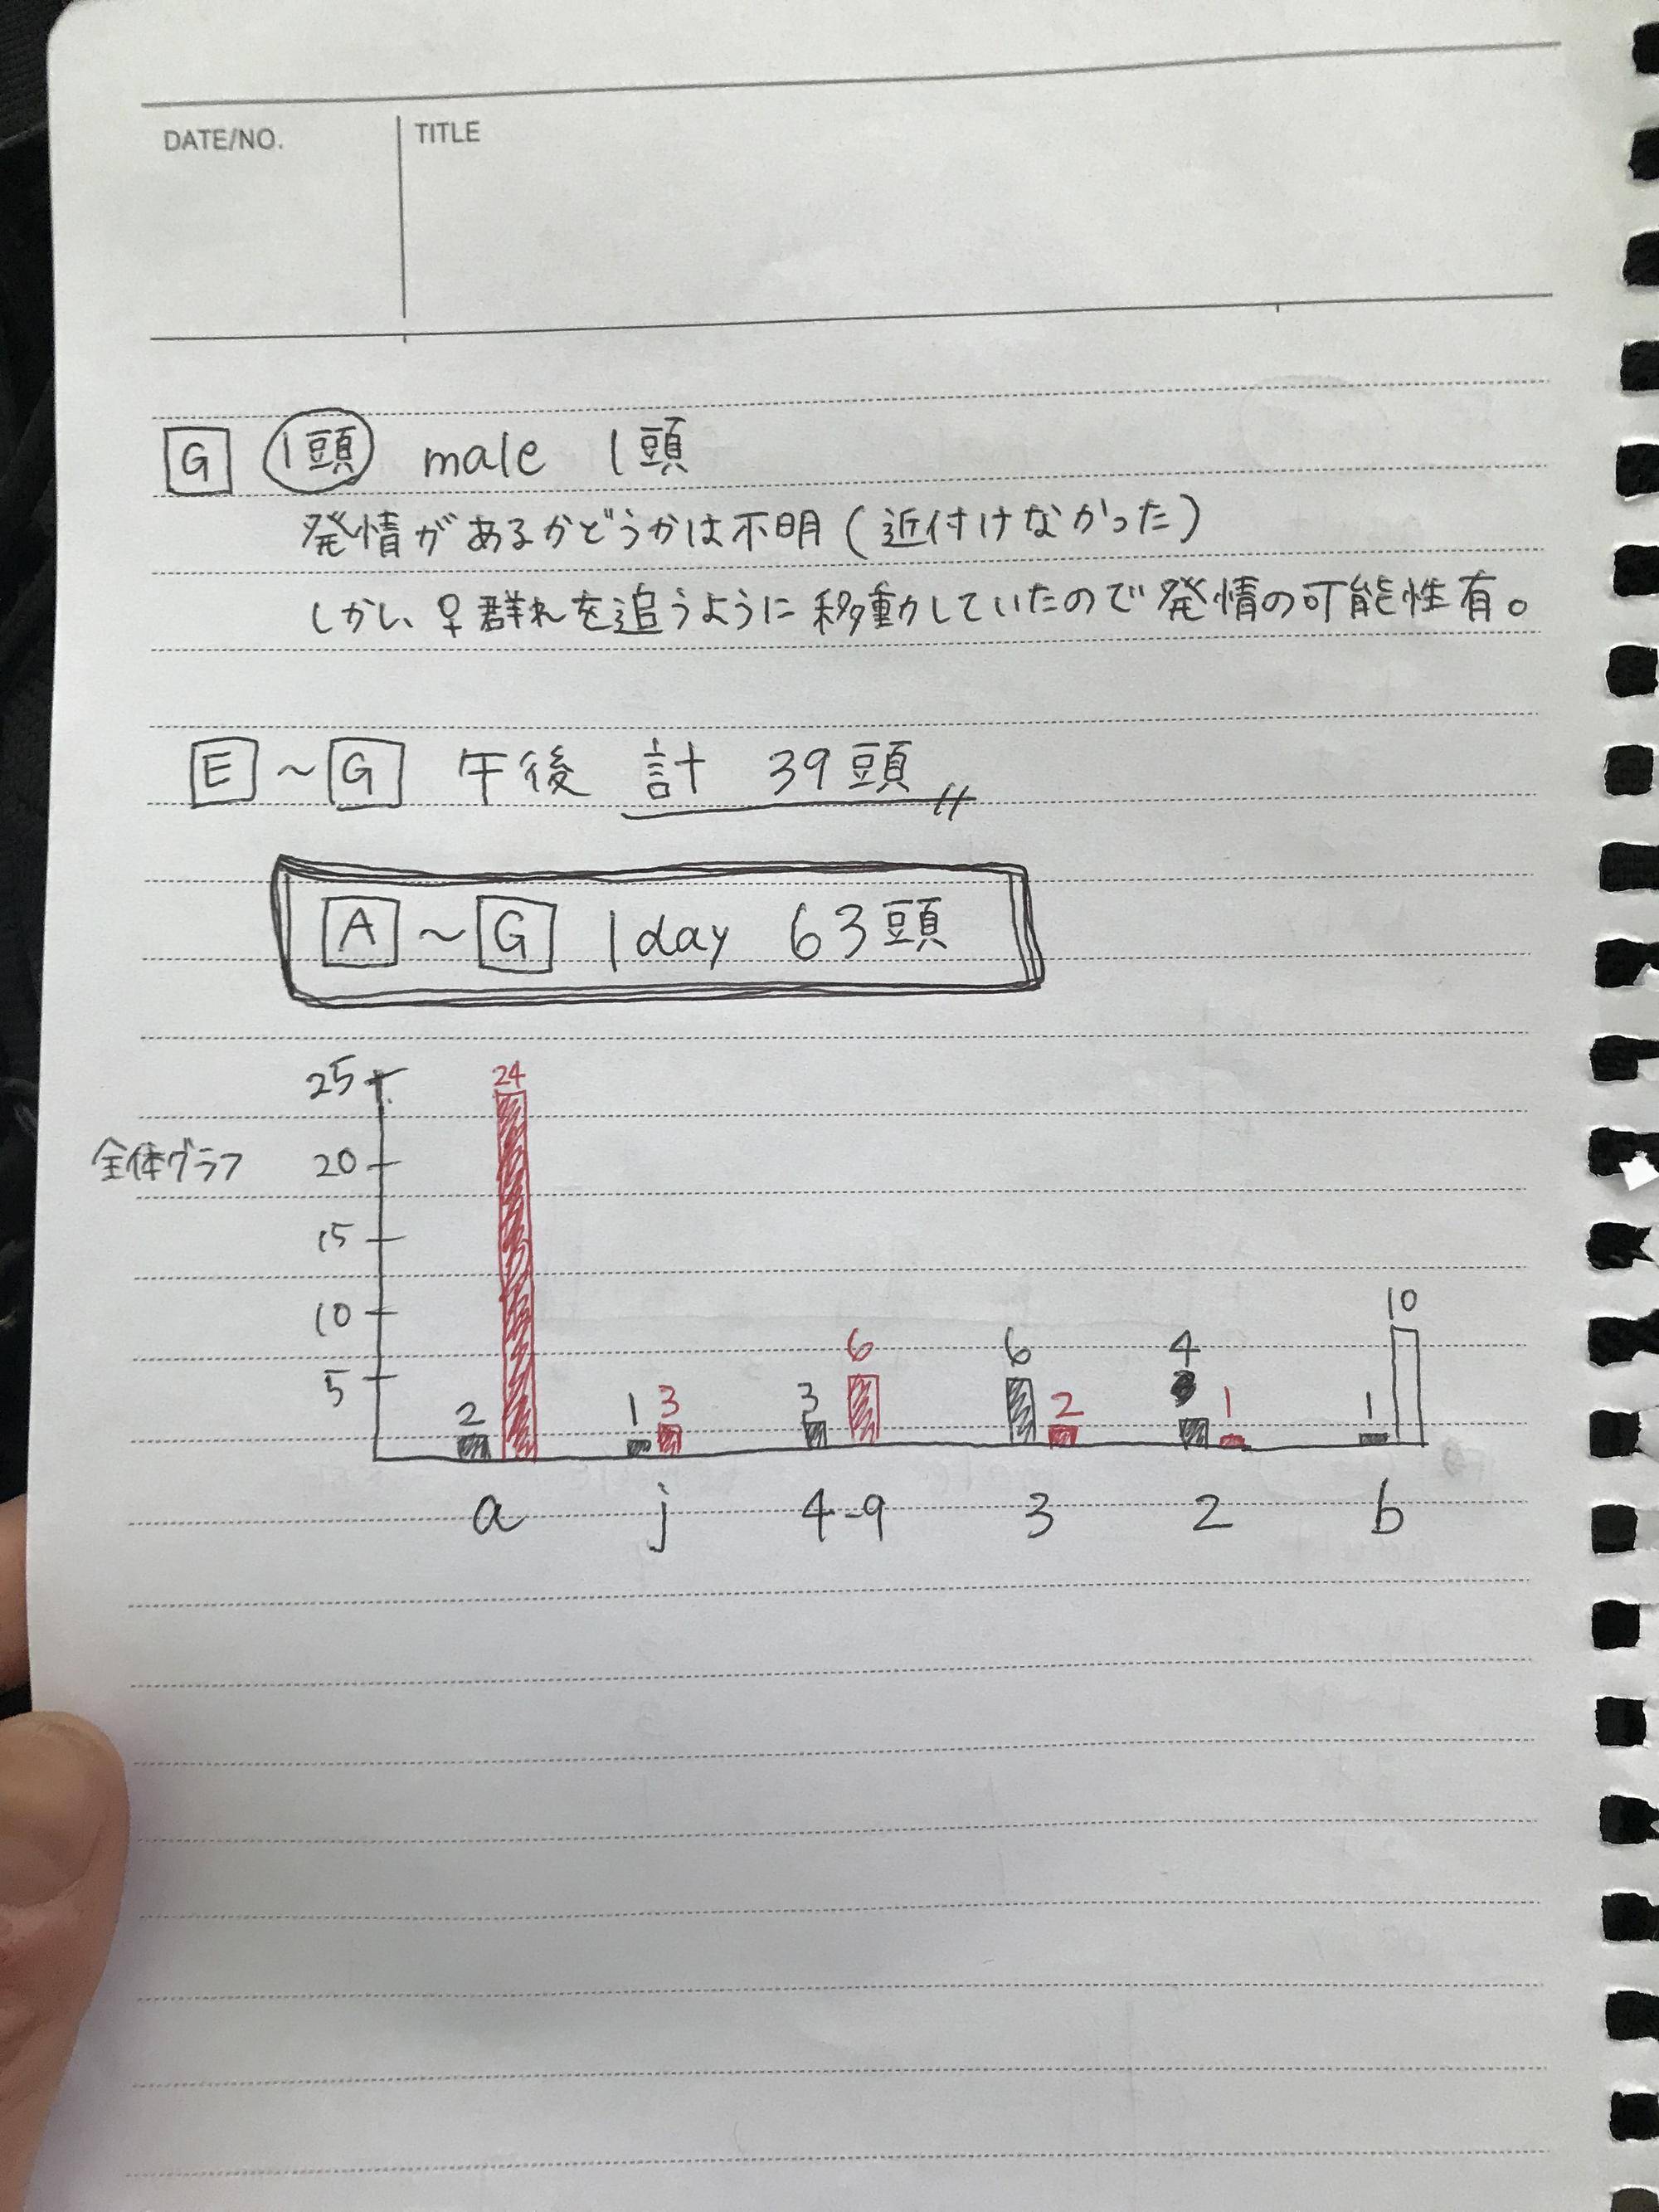 DATE/NO. TITLE
G 1頭 male 1頭
発情があるかどうかは不明(近付けなかった)
しかし、♀群れを追うように移動していたので発情の可能性有。
E～G 午後 計 39頭
A～G 1day 63頭
全体グラフ
25
20
15
10
5
2 24 1 3 3 6 6 2 4 1 1 10
a j 4-9 3 2 b